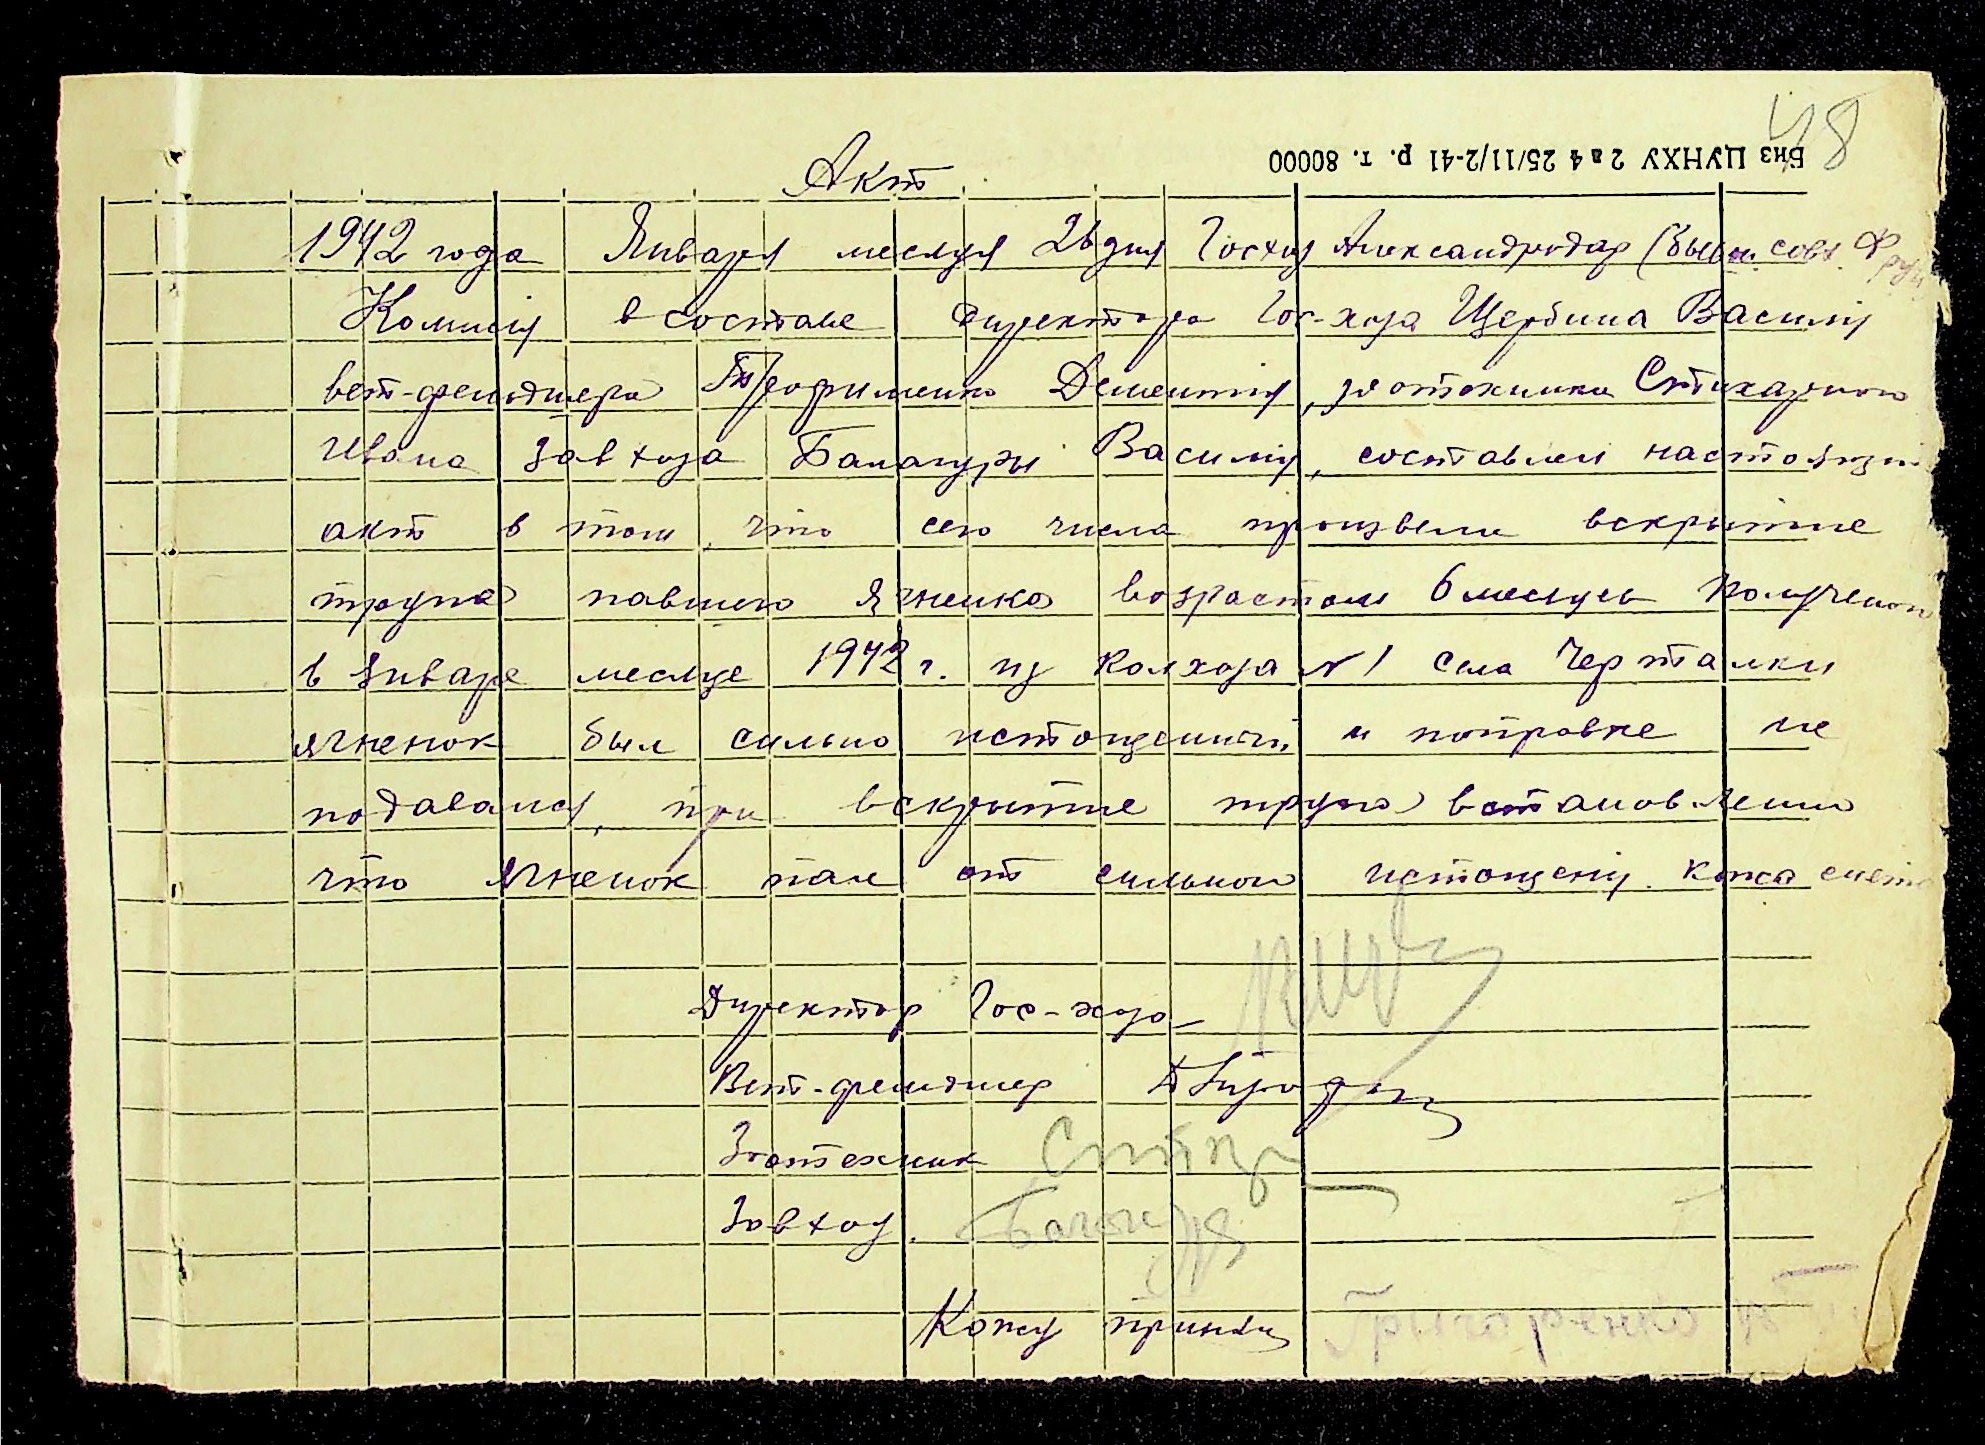 48
Биз ЦУНХУ 2 в 4 25/11/2-41 р. т. 80000
Акт
1942 года Января месяця 26 дня Госхоз Александродар (бывш. совх. Фрун
Комисия в составе директора Гос-хоза Щербина Василия
вет-фельдшера Трофименко Дементия, зоотехника Стихарного
Ивана Завхоза Балагуры Василия, составлен настоящий
акт в том что сего числа произвели вскрытие
трупа павшего ягненка возрастом 6 месяцев полученого
в январе месяце 1942 г. из колхоза N 1 села Черталки
ягненок был сильно истощенный и поправке не
подавался, при вскрытие трупа встановлено
что ягненок пал от сильного истощения. кожа снята
Директор Гос-хоза
Вет-фельдшер
Зоотехник
Завхоз. Балагура
Кожу принял Григоренко